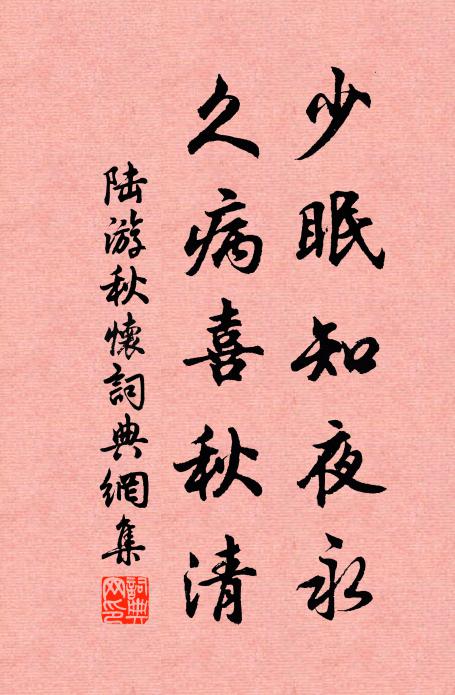 少眠知夜永
久病喜秋清
陆游秋懷詞典網集
詞典
网印